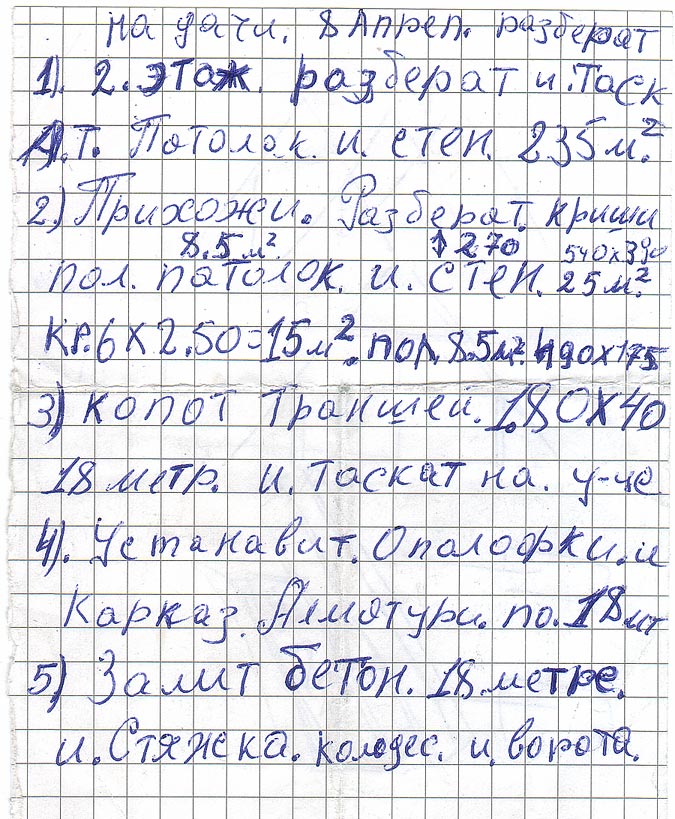 на дачи. 8 Апреп. разберат
1). 2. этаж. разберат и. Таск
А.Т. Потолок. и. стен. 235 м.²
2) Прихожи. Разберат. криши
8.5 м². 270 540х390
пол. патолок. и. стен. 25 м.²
КР.6 Х 2.50=15 м². пол. 8.5 м². 490х175
3) копот Траншей. 1.80Х40
18 метр. и. таскат на. у-че
4). Установит. Опалофки. и
Карказ. Алмотури. по. 18 мт
5) Залит бетон. 18. метре.
и. Стяжека. колодес. и. ворота.